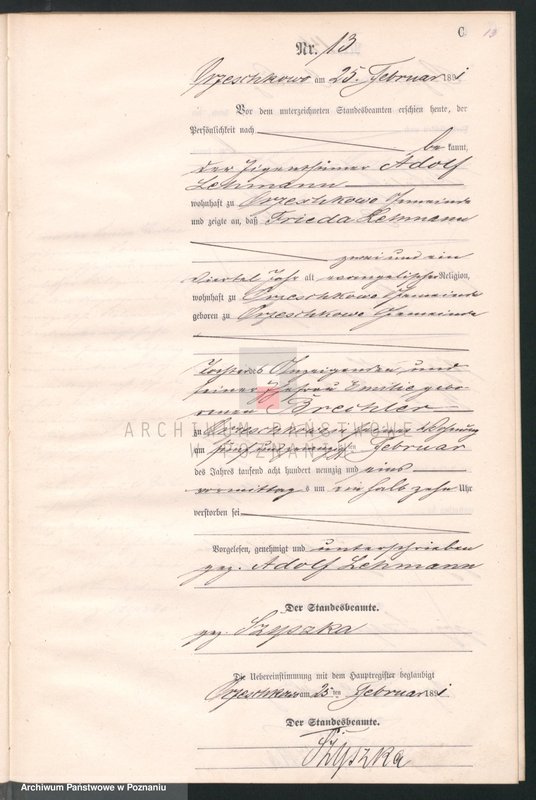 C. 13
Nr. 13
Orzeschkowo am 25. Februar 1891
Vor dem unterzeichneten Standesbeamten erschien heute, der
Persönlichkeit nach
be kannt,
der Eigenthümer Adolf
Lehmann
wohnhaft zu Orzeschkowo Gemeinde
und zeigte an, daß Frieda Lehmann
zwei und ein
Viertel Jahr alt evangelischer Religion,
wohnhaft zu Orzeschkowo Gemeinde
geboren zu Orzeschkowo Gemeinde
Tochter des Anzeigenden und
seiner Ehefrau Emilie gebo-
renen
ARCHIWUM PAŃSTWOWE
W POZNANIU
zu Orzeschkowo in seiner Wohnung
am fünf und zwanzigsten Februar
des Jahres tausend acht hundert neunzig und eins
vormittags um ein halb zehn Uhr
verstorben sei
Vorgelesen, genehmigt und unterschrieben
gez. Adolf Lehmann
Der Standesbeamte.
gez. Szyszka
Die Uebereinstimmung mit dem Hauptregister beglaubigt
Orzeschkowo am 25 ten Februar 1891
Der Standesbeamte.
Szyszka
Archiwum Państwowe w Poznaniu